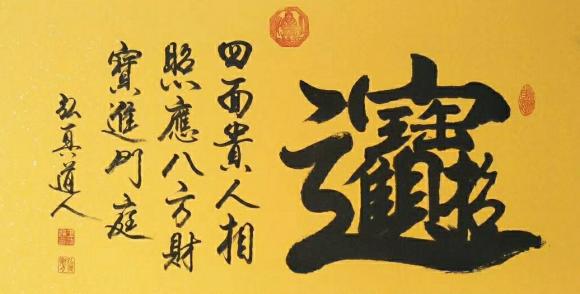 招財進寶
四面貴人相
照應八方財
寶進門庭
真道人